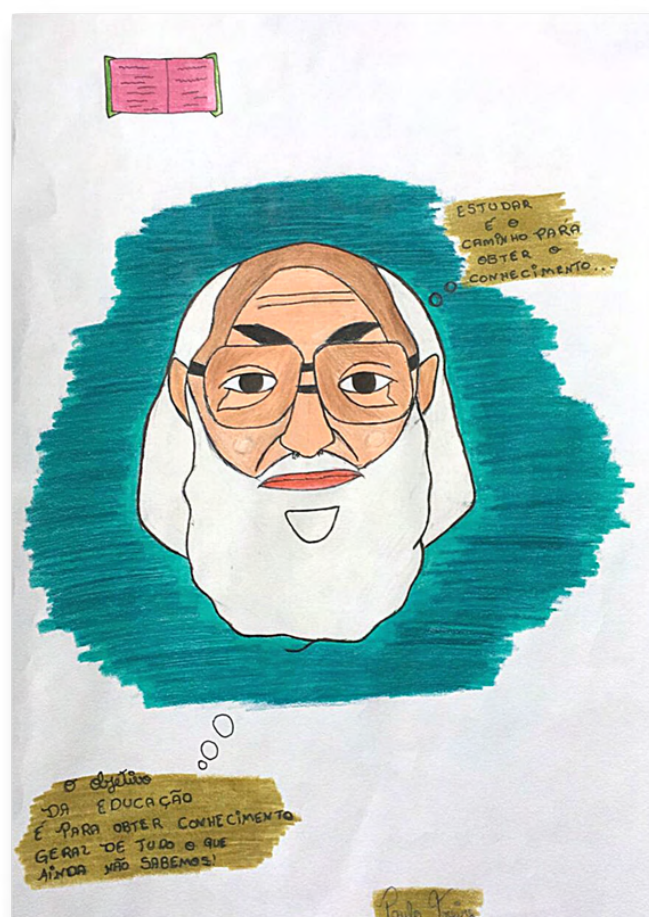 ESTUDAR
É O
CAMINHO PARA
OBTER O
CONHECIMENTO...
O objetivo
DA EDUCAÇÃO
É PARA OBTER CONHECIMENTO
GERAL DE TUDO O QUE
AINDA NÃO SABEMOS!
Paulo Freire